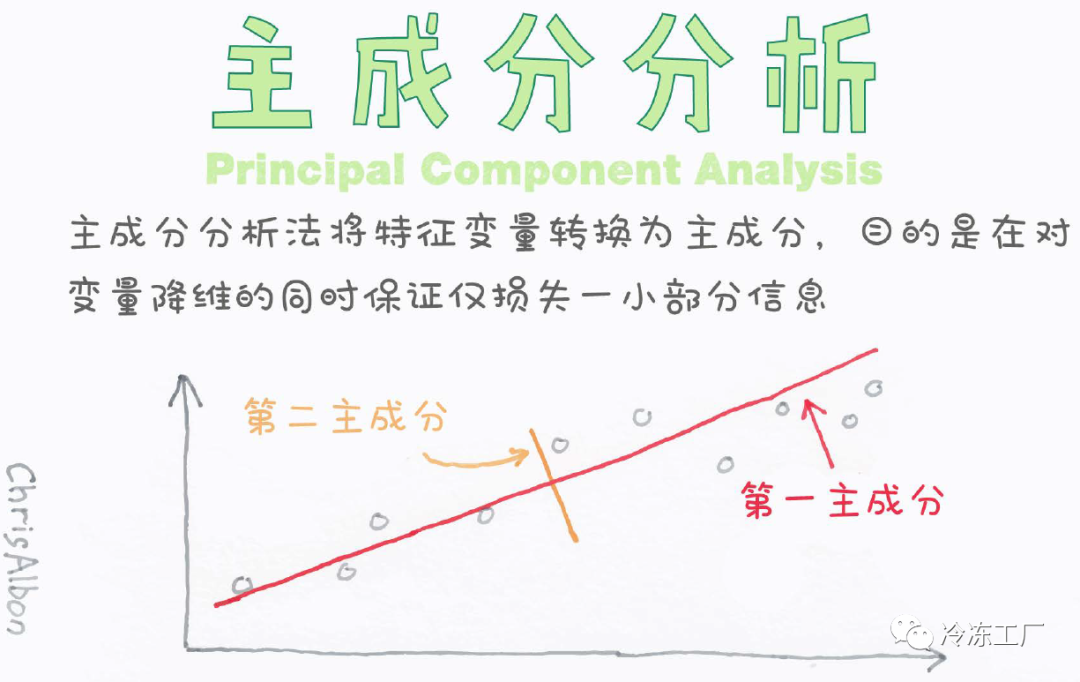 主成分分析
Principal Component Analysis
主成分分析法将特征变量转换为主成分，目的是在对
变量降维的同时保证仅损失一小部分信息
第二主成分
第一主成分
ChrisAlbon
冷冻工厂